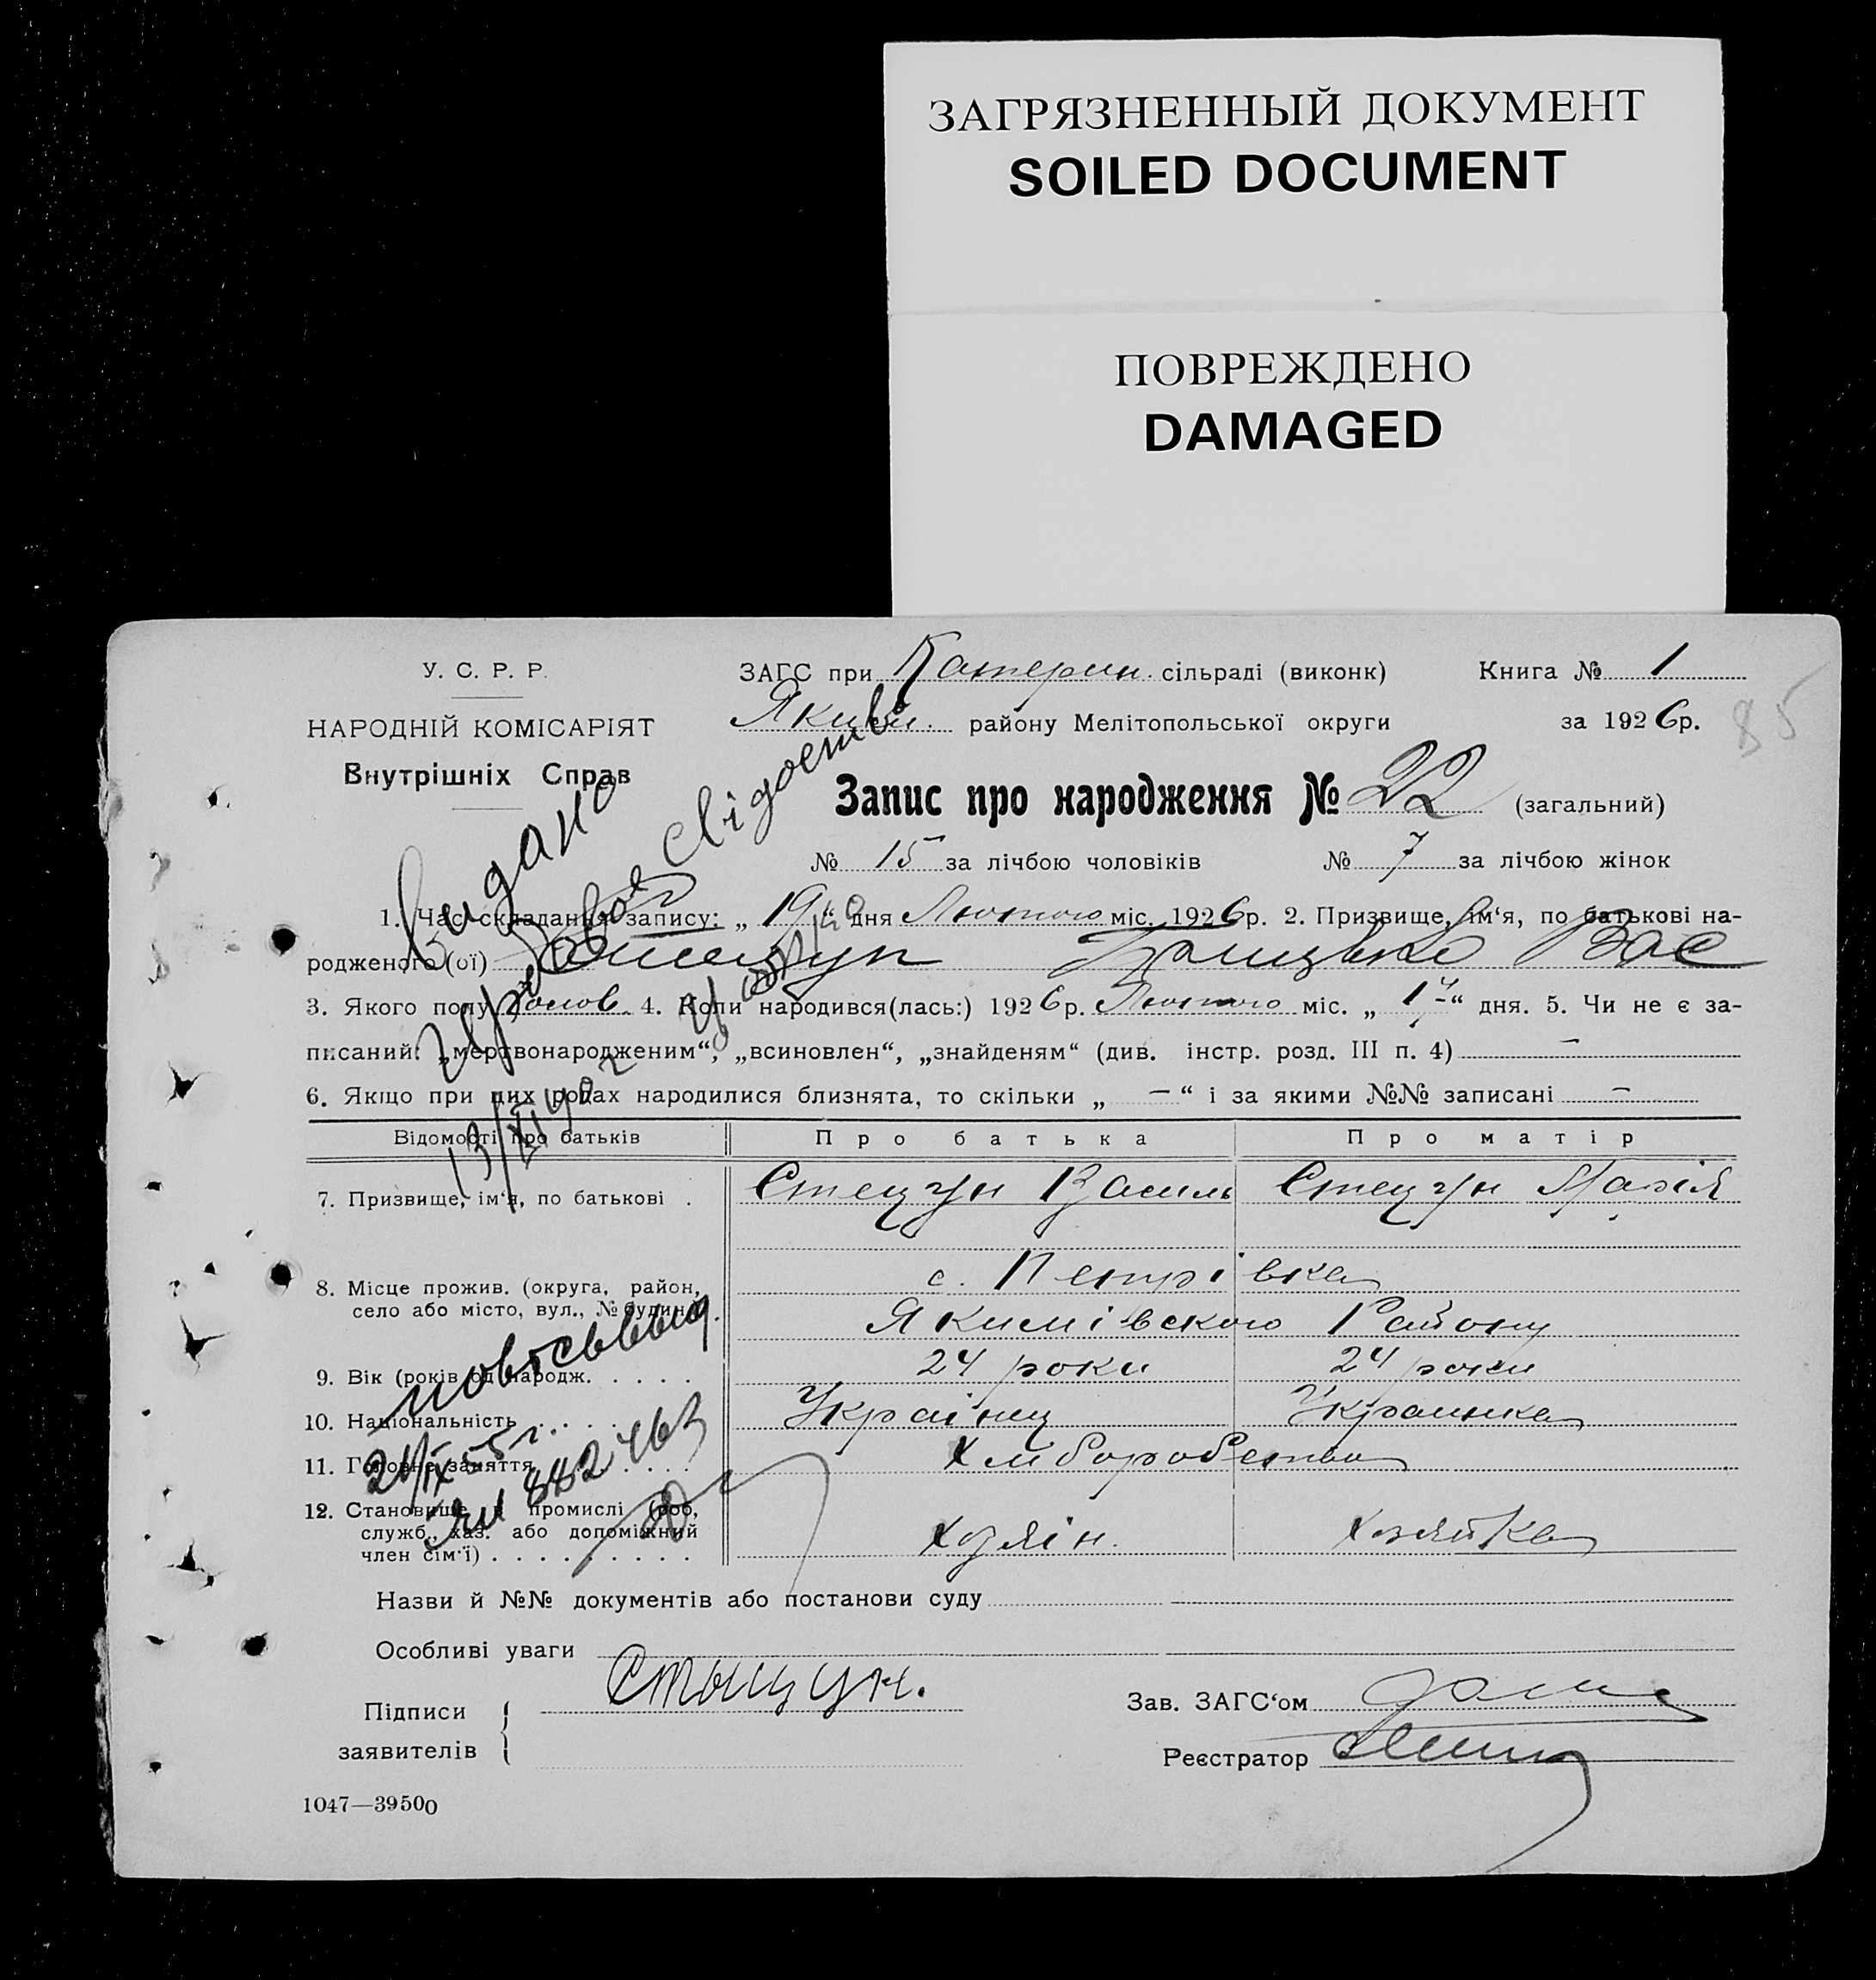 ЗАГРЯЗНЕННЫЙ ДОКУМЕНТ
SOILED DOCUMENT
ПОВРЕЖДЕНО
DAMAGED
У. С. Р. Р.
НАРОДНІЙ КОМІСАРІЯТ
Внутрішніх Справ
ЗАГС при Катерин. сільраді (виконк) Книга № 1
Яким. району Мелітопольської округи за 1926р.
85
Запис про народження № 22 (загальний)
№ 15 за лічбою чоловіків № 7 за лічбою жінок
1. Час складання запису: „ 19 “ дня Лютого міс. 1926р. 2. Призвище, ім‘я, по батькові на-
родженого (ої) Стецун Грицько Вас
3. Якого полу чолов. 4. Коли народився(лась:) 1926р. Лютого міс. „ 17 “ дня. 5. Чи не є за-
писаний: „мертвонародженим“, „всиновлен“, „знайденям“ (див. інстр. розд. III п. 4) –
6. Якщо при цих родах народилися близнята, то скільки „ – “ і за якими №№ записані –
Відомості про батьків Про батька Про матір
7. Призвище, ім‘я, по батькові . Стецун Василь Стецун Марія
8. Місце прожив. (округа, район, село або місто, вул., № будин.) .
с. Петрівка
Якимівского Району
9. Вік (років од народж. . . . . 24 роки 24 роки
10. Національність . . . . Українец Украинка
11. Головне заняття . . . . Хліборобство
12. Становище в промислі (роб,
служб., хаз. або допоміжний
член сім‘ї) . . . . . . . . . Хозяін. Хозяйка
Видано
свідоств
13/XI
повторная
21/IX 55 г.
842463
Назви й №№ документів або постанови суду
Особливі уваги
Підписи
заявителів
Стыцун.
Зав. ЗАГС‘ом
Реєстратор
1047—39500